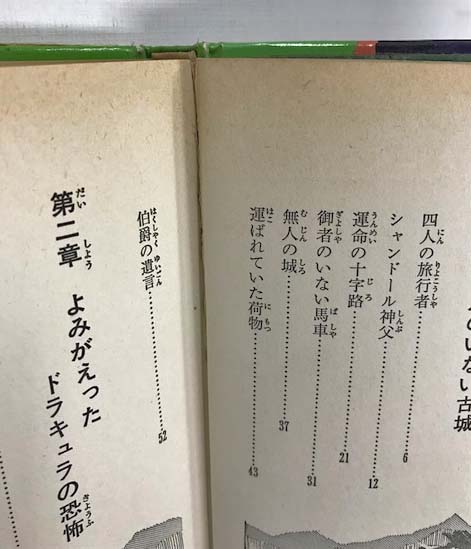 のいない古城
四人の旅行者 6
シャンドール神父 12
運命の十字路 21
御者のいない馬車 31
無人の城 37
運ばれていた荷物 43
伯爵の遺言 52
第二章 よみがえった
ドラキュラの恐怖